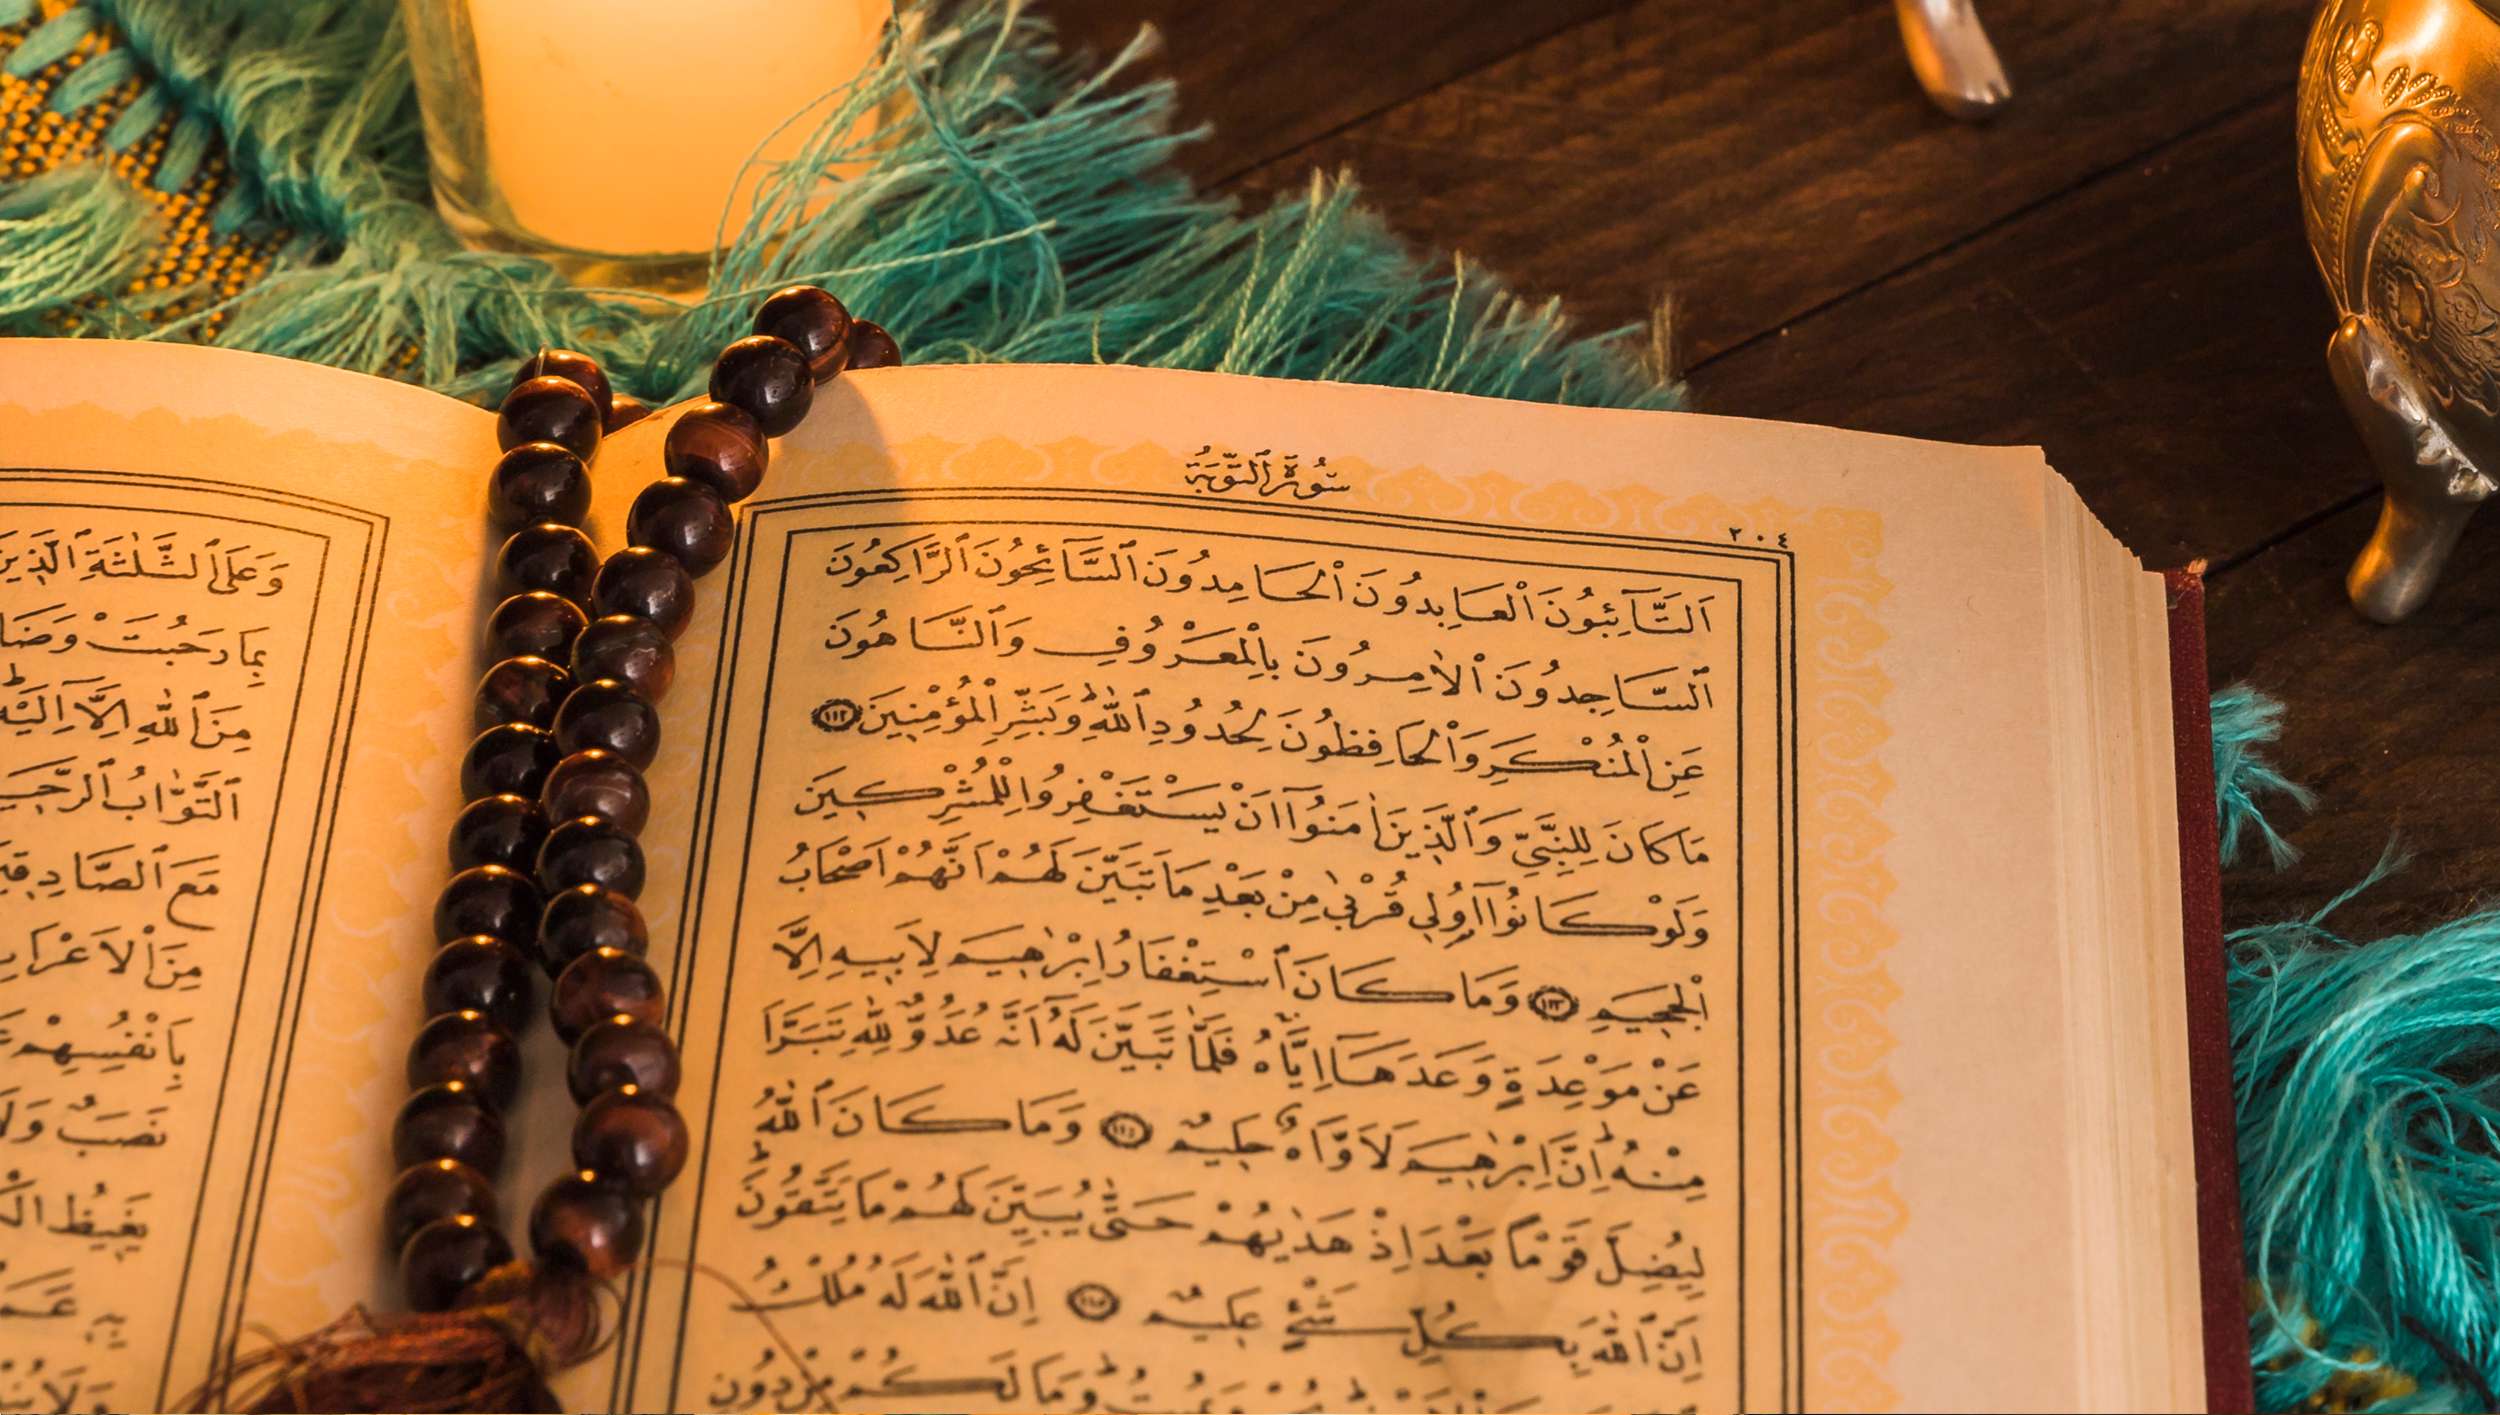 سُورَةُ ٱلتَّوْبَةِ
٢٠٤
اَلتَّآئِبُونَ ٱلْعَابِدُونَ ٱلْحَامِدُونَ ٱلسَّآئِحُونَ ٱلرَّاكِعُونَ
ٱلسَّاجِدُونَ ٱلْاٰمِرُونَ بِالْمَعْرُوفِ وَٱلنَّاهُونَ
عَنِ ٱلْمُنْكَرِ وَٱلْحَافِظُونَ لِحُدُودِ ٱللّٰهِ وَبَشِّرِ ٱلْمُؤْمِنِينَ ١١٢
مَا كَانَ لِلنَّبِيِّ وَٱلَّذِينَ اٰمَنُوٓا اَنْ يَسْتَغْفِرُوا لِلْمُشْرِكِينَ
وَلَوْ كَانُوٓا اُو۬لِي قُرْبٰى مِنْ بَعْدِ مَا تَبَيَّنَ لَهُمْ اَنَّهُمْ اَصْحَابُ
ٱلْجَحِيمِ ١١٣ وَمَا كَانَ ٱسْتِغْفَارُ اِبْرٰهِيمَ لِاَبِيهِ اِلَّا
عَنْ مَوْعِدَةٍ وَعَدَهَآ اِيَّاهُ فَلَمَّا تَبَيَّنَ لَهُٓ اَنَّهُ عَدُوٌّ لِلّٰهِ تَبَرَّاَ
مِنْهُ اِنَّ اِبْرٰهِيمَ لَاَوَّاهٌ حَلِيمٌ ١١٤ وَمَا كَانَ ٱللّٰهُ
لِيُضِلَّ قَوْمًا بَعْدَ اِذْ هَدٰيهُمْ حَتّٰى يُبَيِّنَ لَهُمْ مَا يَتَّقُونَ
اِنَّ ٱللّٰهَ بِكُلِّ شَيْءٍ عَلِيمٌ ١١٥ اِنَّ ٱللّٰهَ لَهُ مُلْكُ
وَمَا لَكُمْ مِنْ دُونِ
وَعَلَى ٱلثَّلٰثَةِ ٱلَّذِينَ
بِمَا رَحُبَتْ
مِنَ ٱللّٰهِ اِلَّآ اِلَيْهِ
ٱلتَّوَّابُ
مَعَ ٱلصَّادِقِ
مِنَ ٱلْاَعْرَابِ
بِاَنْفُسِهِمْ
نَصَبٌ
يَغِيظُ